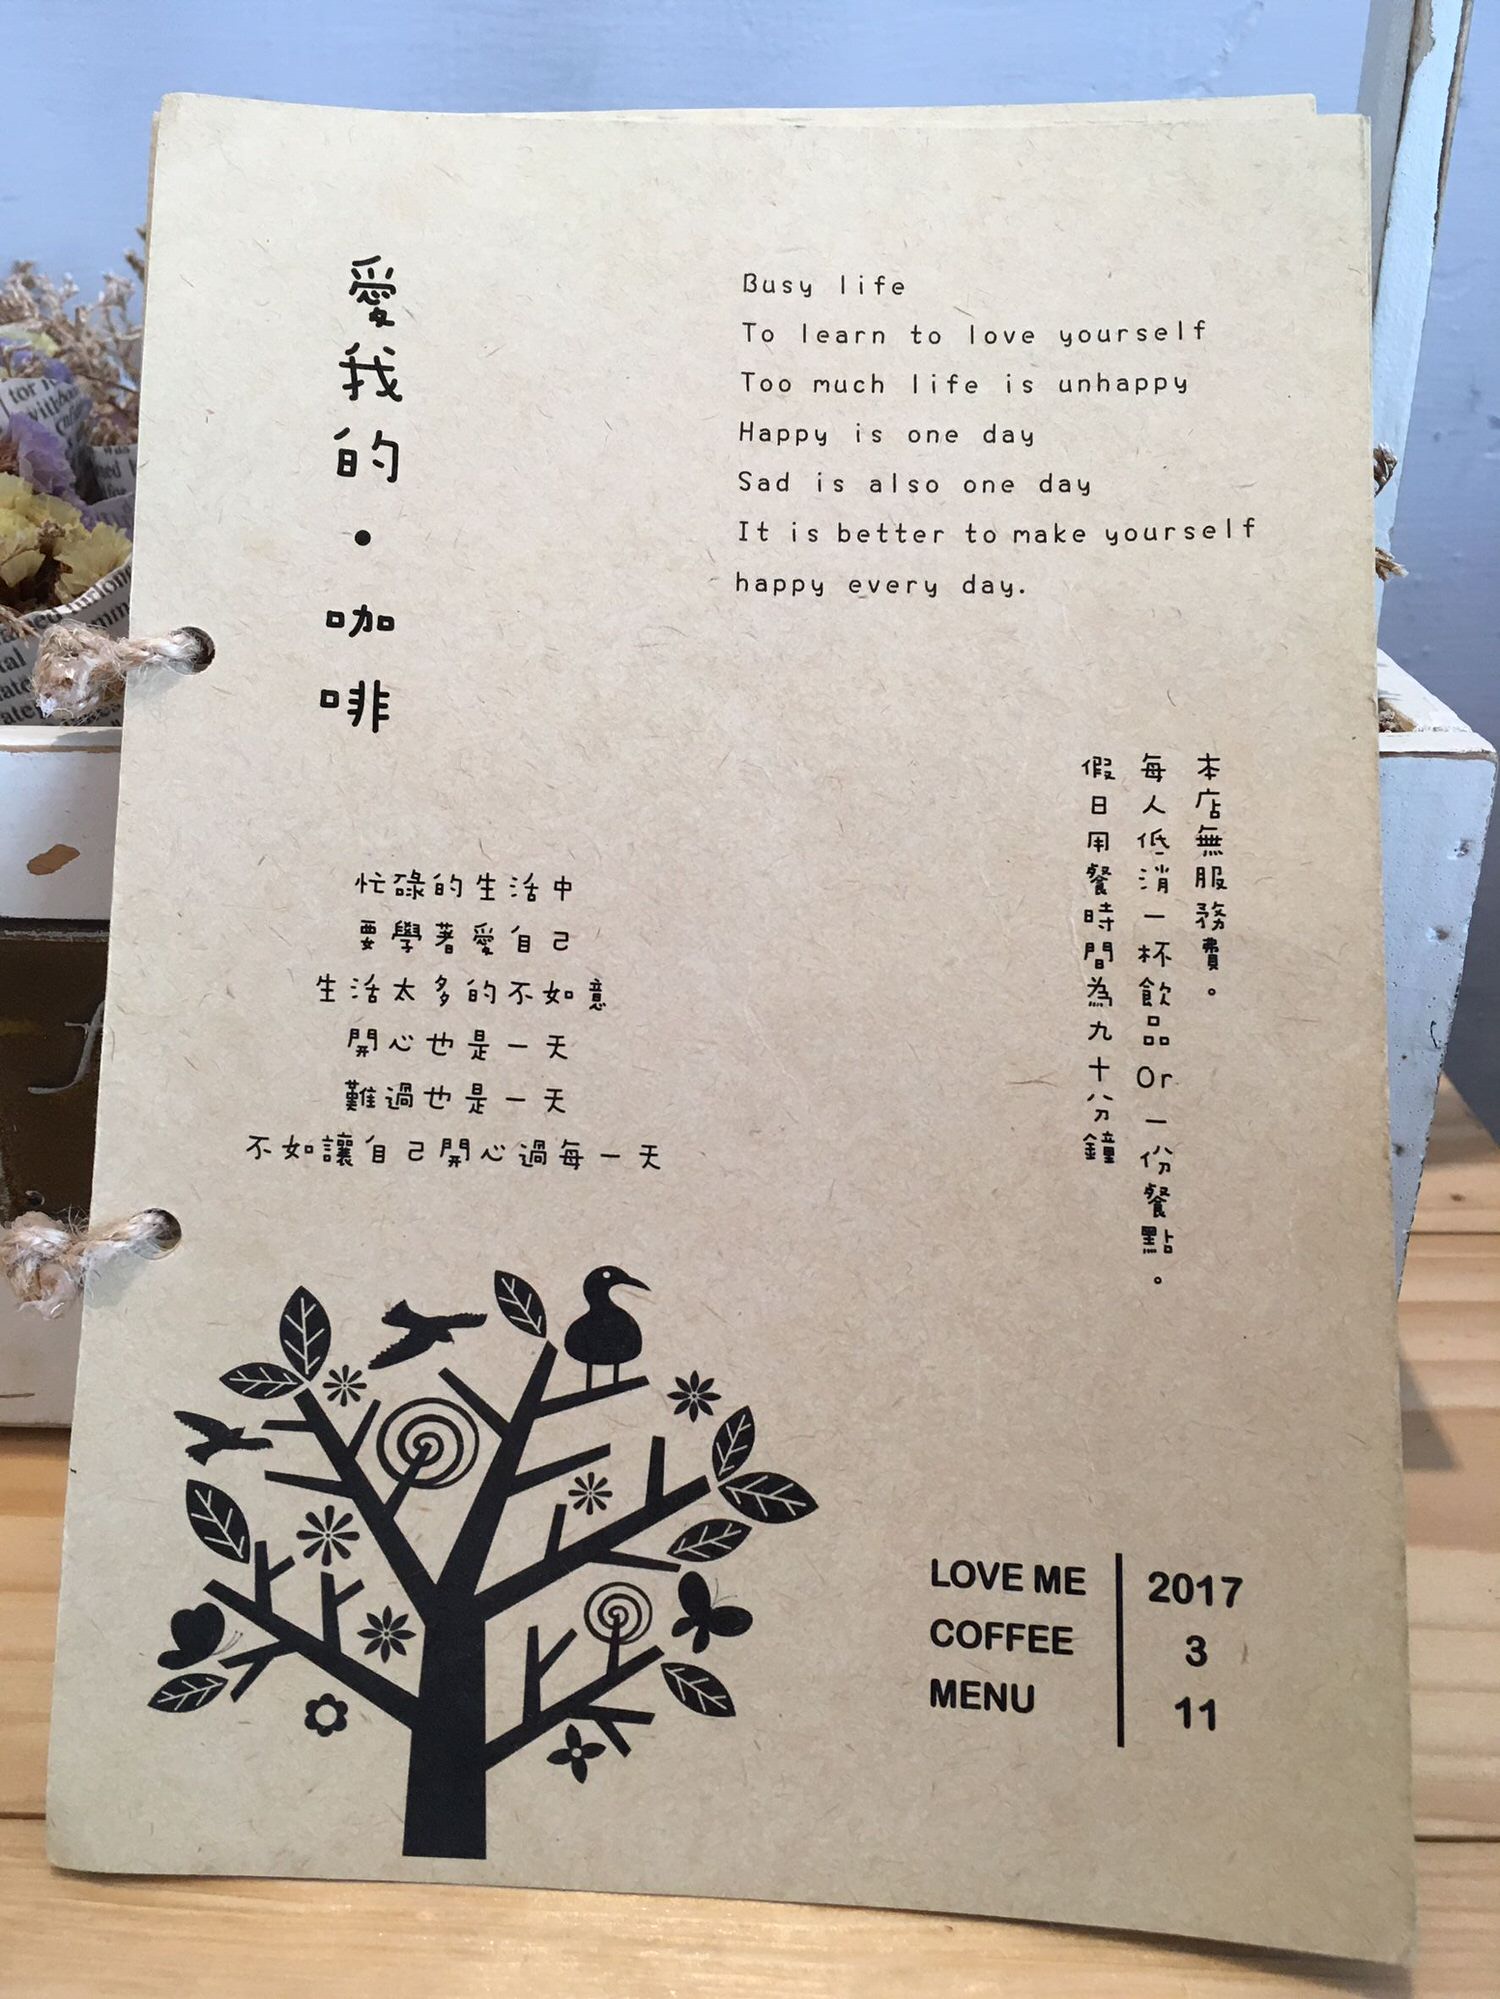 愛我的・咖啡
Busy life
To learn to love yourself
Too much life is unhappy
Happy is one day
Sad is also one day
It is better to make yourself
happy every day.
本店無服務費。
每人低消一杯飲品Or一份餐點。
假日用餐時間為九十分鐘
忙碌的生活中
要學著愛自己
生活太多的不如意
開心也是一天
難過也是一天
不如讓自己開心過每一天
LOVE ME
COFFEE
MENU
2017
3
11